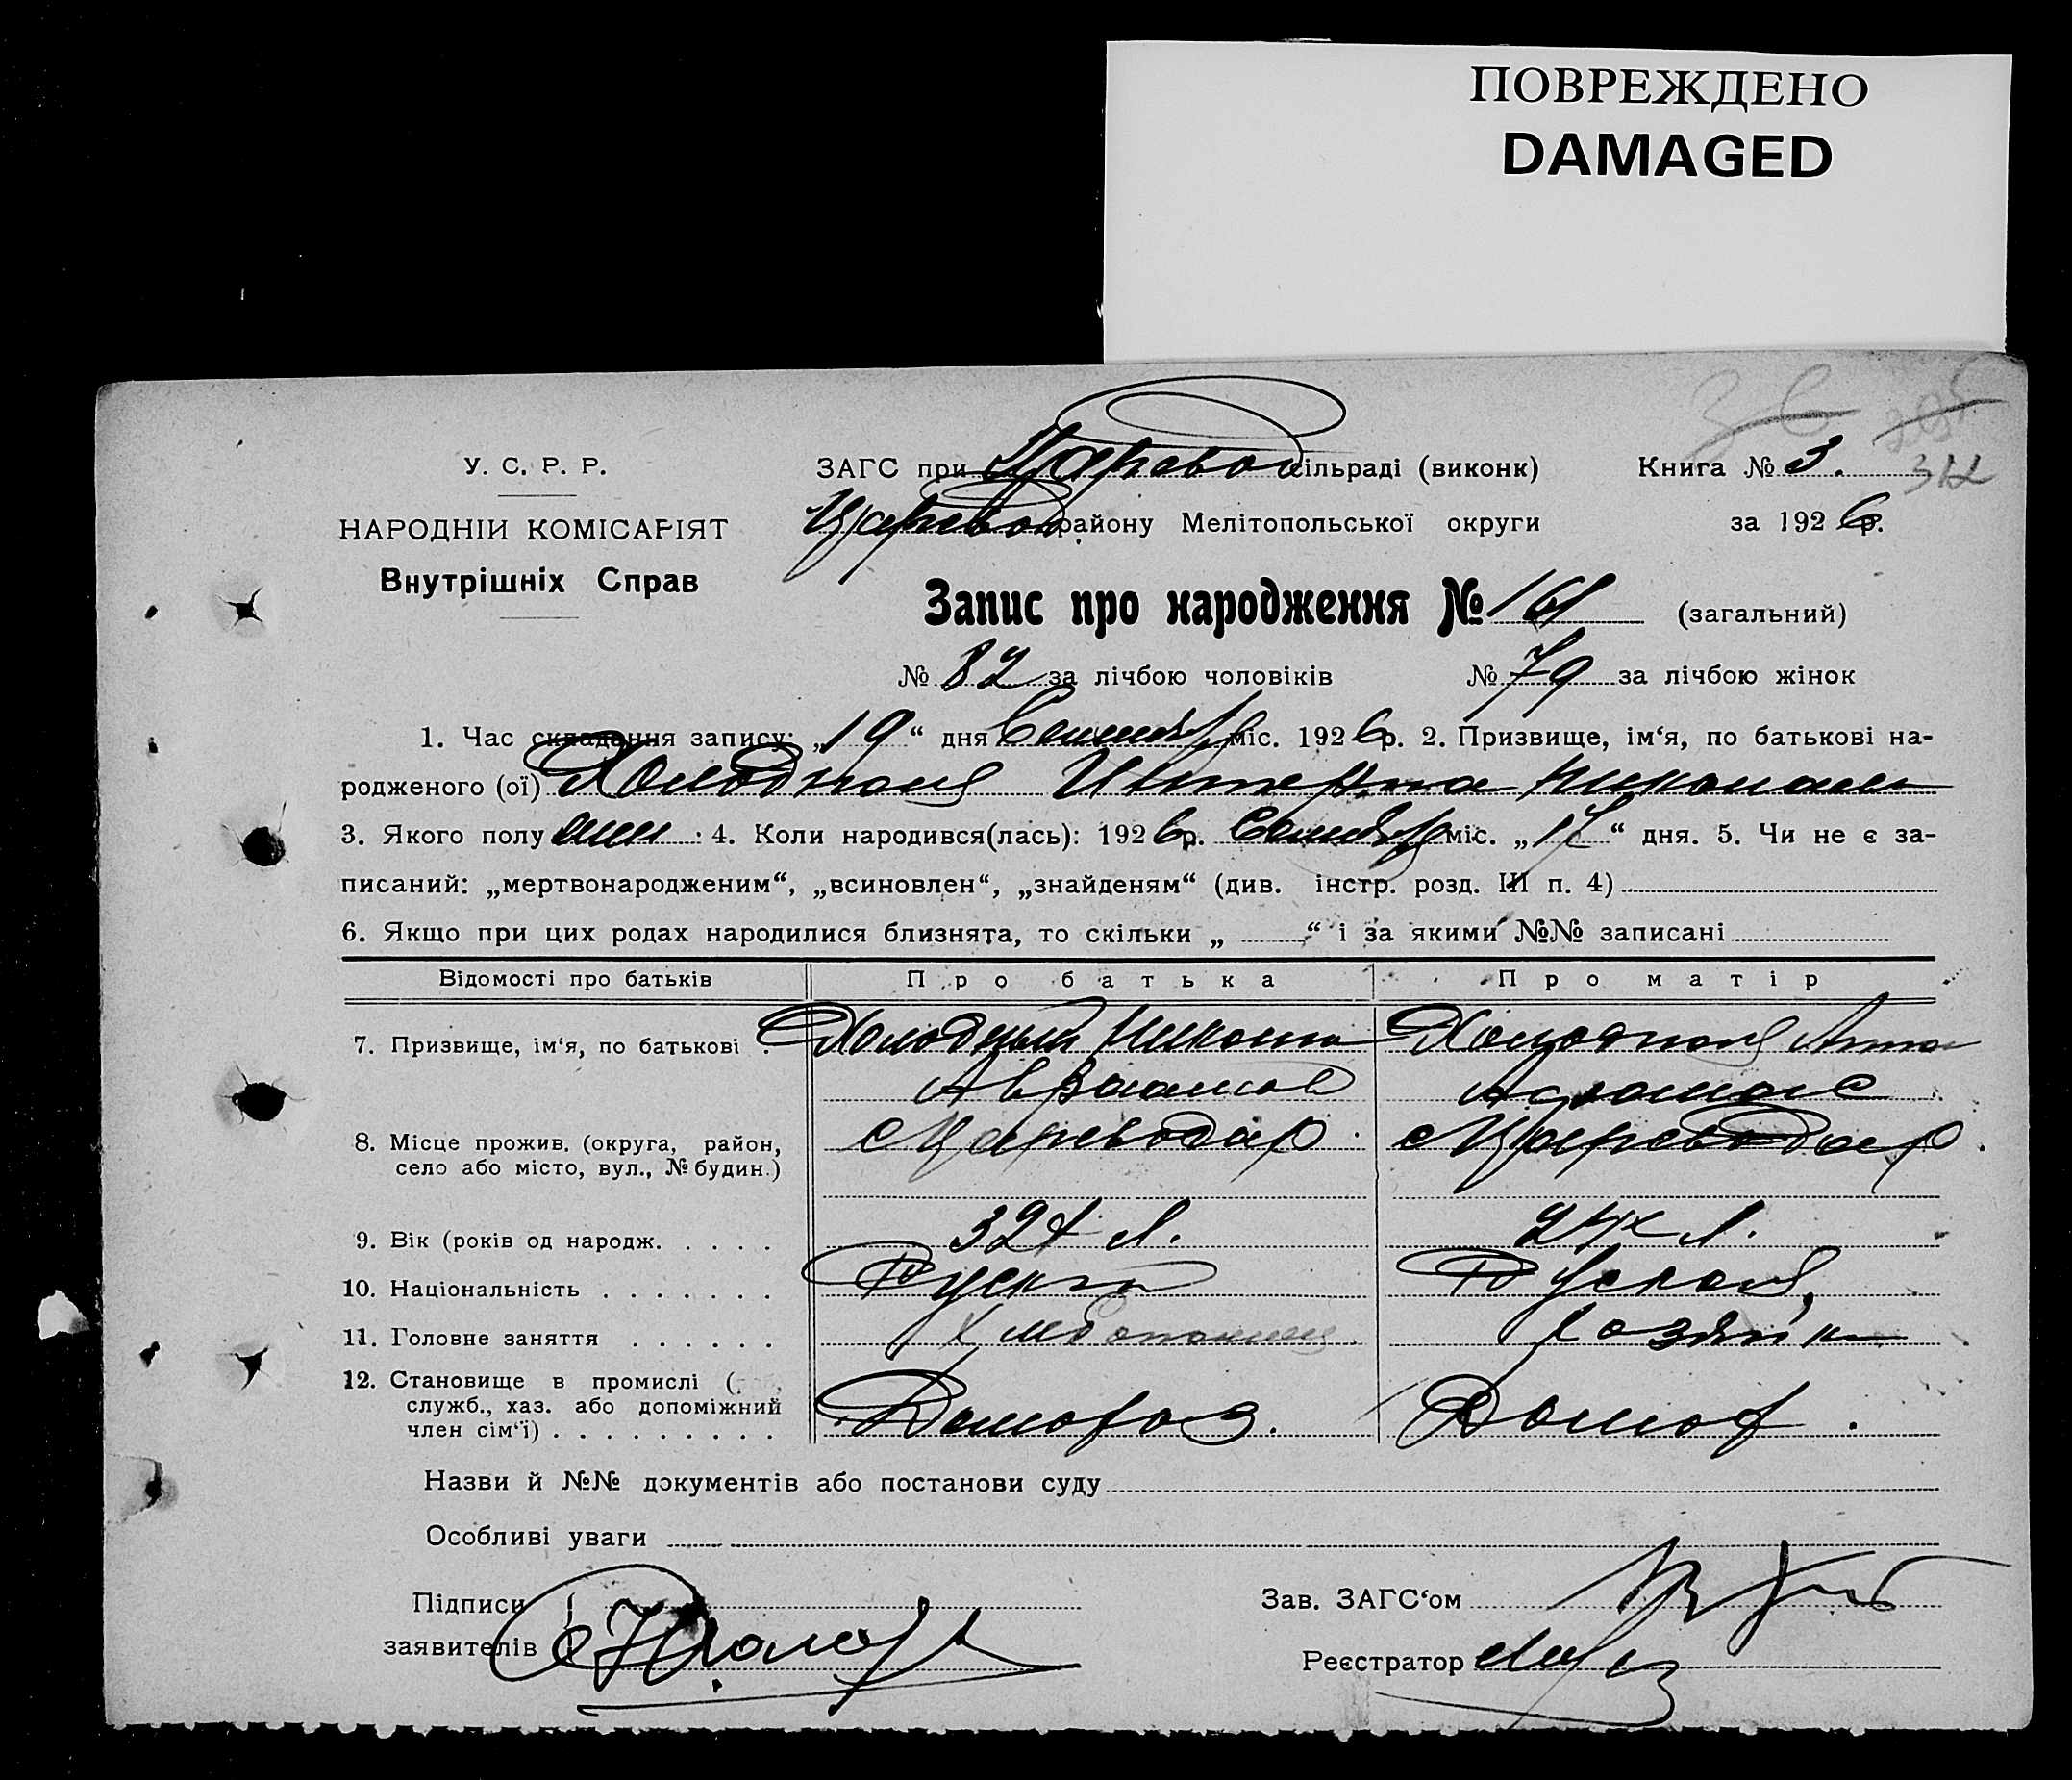 ПОВРЕЖДЕНО
DAMAGED
У. С. Р. Р.
ЗАГС при Царевод сільраді (виконк)
Книга № 3.
312
НАРОДНІЙ КОМІСАРІЯТ
Царевод району Мелітопольської округи
за 1926 р.
Внутрішніх Справ
Запис про народження № 161 (загальний)
№ 82 за лічбою чоловіків № 79 за лічбою жінок
1. Час складання запису: „19“ дня Сентяб міс. 1926 р. 2. Призвище, ім‘я, по батькові на-
родженого (ої) Холодная
3. Якого полу жен : 4. Коли народився(лась): 1926 р. Сентябр міс. „17“ дня. 5. Чи не є за-
писаний: „мертвонародженим“, „всиновлен“, „знайденям“ (див. інстр. розд. III п. 4)
6. Якщо при цих родах народилися близнята, то скільки „ “ і за якими №№ записані
Відомості про батьків
Про батька
Про матір
7. Призвище, ім‘я, по батькові .
Холодный Никола
Холодная Анна
Авраамов
8. Місце прожив. (округа, район,
село або місто, вул., № будин.)
с Цареводар
с Цареводар.
9. Вік (років од народж. . . . .
32х л.
24х л.
10. Національність . . . . . . .
Руский
Руская
11. Головне заняття . . . . . .
Хлебопашец
Хозяйк
12. Становище в промислі (
служб., хаз. або допоміжний
член сім‘ї) . . . . . . . . .
Домохоз.
Домох.
Назви й №№ документів або постанови суду
Особливі уваги
Підписи
заявителів
Зав. ЗАГС‘ом
Реєстратор